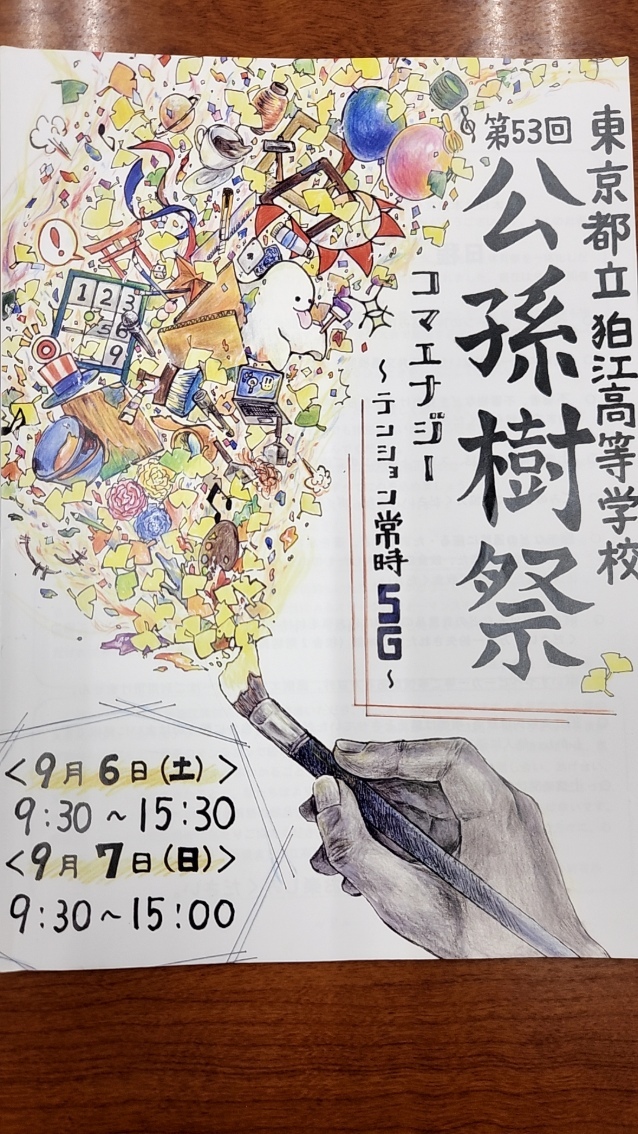 東京都立狛江高等学校
第53回
公孫樹祭
コマエナジー
～テンション常時5G～
!
1 2 3
5 6
9
<9月6日(土)>
9:30～15:30
<9月7日(日)>
9:30～15:00